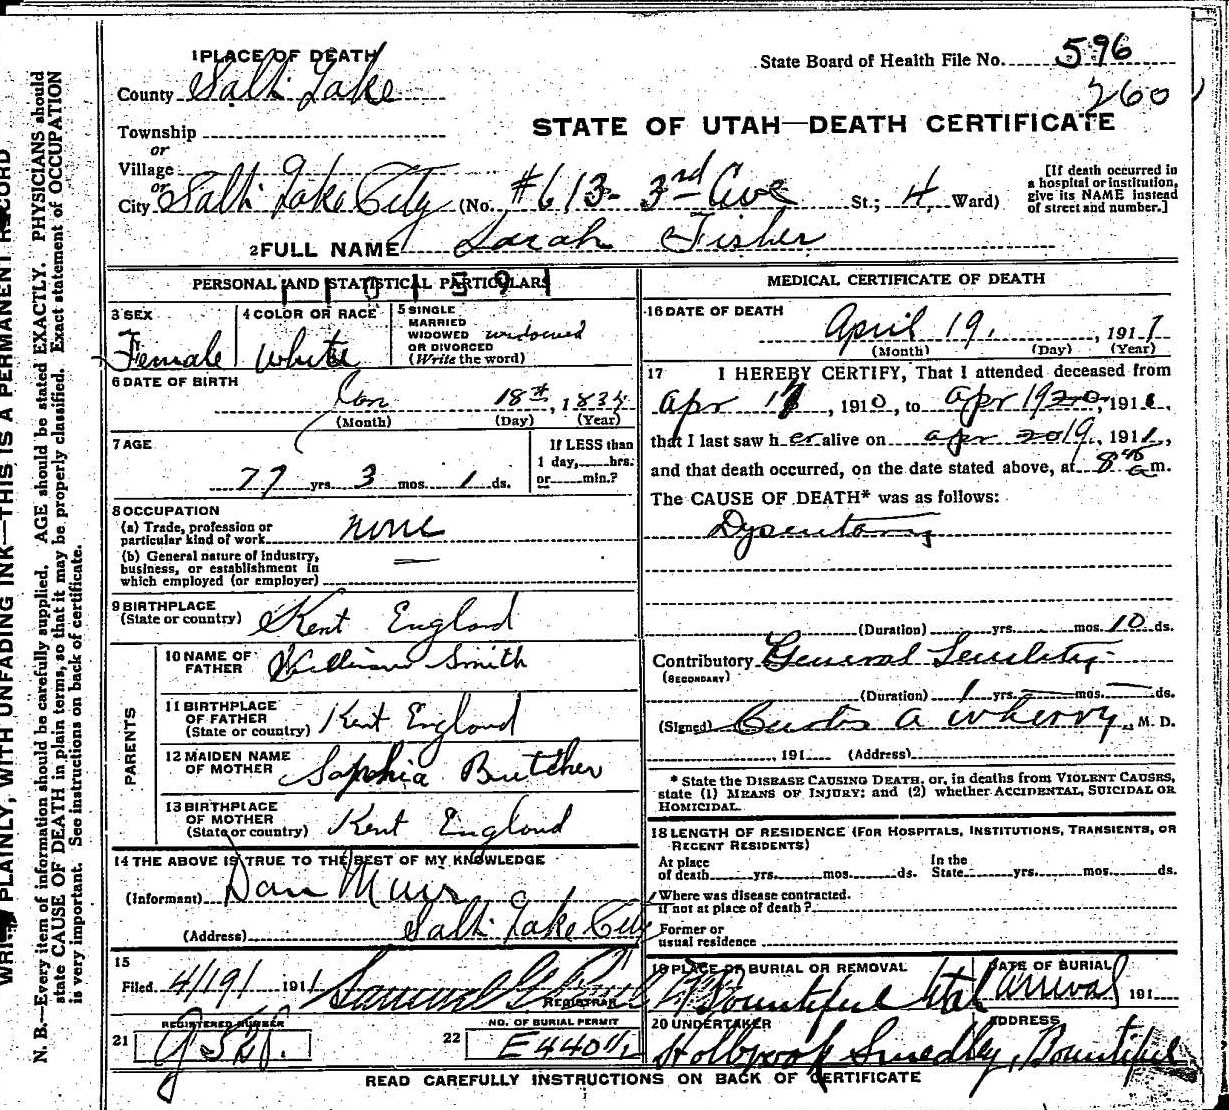 1 PLACE OF DEATH
County Salt Lake
State Board of Health File No. 596
260
Township
or
Village
or
City Salt Lake City (No. #613- 3rd Ave St.; 4 Ward)
STATE OF UTAH—DEATH CERTIFICATE
[If death occurred in a hospital or institution, give its NAME instead of street and number.]
2 FULL NAME Sarah Fisher
PERSONAL AND STATISTICAL PARTICULARS
3 SEX Female
4 COLOR OR RACE White
5 SINGLE MARRIED WIDOWED OR DIVORCED (Write the word) widowed
6 DATE OF BIRTH
Jan 18th, 1834
(Month) (Day) (Year)
7 AGE
77 yrs. 3 mos. 1 ds.
If LESS than 1 day, hrs. or min.?
8 OCCUPATION
(a) Trade, profession or particular kind of work none
(b) General nature of industry, business, or establishment in which employed (or employer) —
9 BIRTHPLACE
(State or country) Kent England
PARENTS
10 NAME OF FATHER William Smith
11 BIRTHPLACE OF FATHER (State or country) Kent England
12 MAIDEN NAME OF MOTHER Sophia Butcher
13 BIRTHPLACE OF MOTHER (State or country) Kent England
14 THE ABOVE IS TRUE TO THE BEST OF MY KNOWLEDGE
(Informant) Dan Muir
(Address) Salt Lake City
15
Filed 4/19/ 1911
REGISTRAR
21 REGISTERED NUMBER
22 NO. OF BURIAL PERMIT
MEDICAL CERTIFICATE OF DEATH
16 DATE OF DEATH
April 19, 1911
(Month) (Day) (Year)
17 I HEREBY CERTIFY, That I attended deceased from
Apr 1910, to Apr 19 1911,
that I last saw her alive on apr 19, 1911,
and that death occurred, on the date stated above, at 8 45 a m.
The CAUSE OF DEATH* was as follows:
Dysentery
(Duration) yrs. mos. 10 ds.
Contributory General Senility
(SECONDARY)
(Duration) 1 yrs. — mos. — ds.
(Signed) Curtis A Wherry, M. D.
, 191 (Address)
* State the DISEASE CAUSING DEATH, or, in deaths from VIOLENT CAUSES, state (1) MEANS OF INJURY; and (2) whether ACCIDENTAL, SUICIDAL OR HOMICIDAL.
18 LENGTH OF RESIDENCE (FOR HOSPITALS, INSTITUTIONS, TRANSIENTS, OR RECENT RESIDENTS)
At place of death yrs. mos. ds. In the State yrs. mos. ds.
Where was disease contracted.
if not at place of death?
Former or usual residence
19 PLACE OF BURIAL OR REMOVAL Bountiful Utah
DATE OF BURIAL Arrival 191
20 UNDERTAKER Holbrook Smedley,
ADDRESS Bountiful
READ CAREFULLY INSTRUCTIONS ON BACK OF CERTIFICATE
PLAINLY, WITH UNFADING INK—THIS IS A PERMANENT RECORD
N. B.—Every item of information should be carefully supplied. AGE should be stated EXACTLY. PHYSICIANS should
state CAUSE OF DEATH in plain terms, so that it may be properly classified. Exact statement of OCCUPATION
is very important. See instructions on back of certificate.